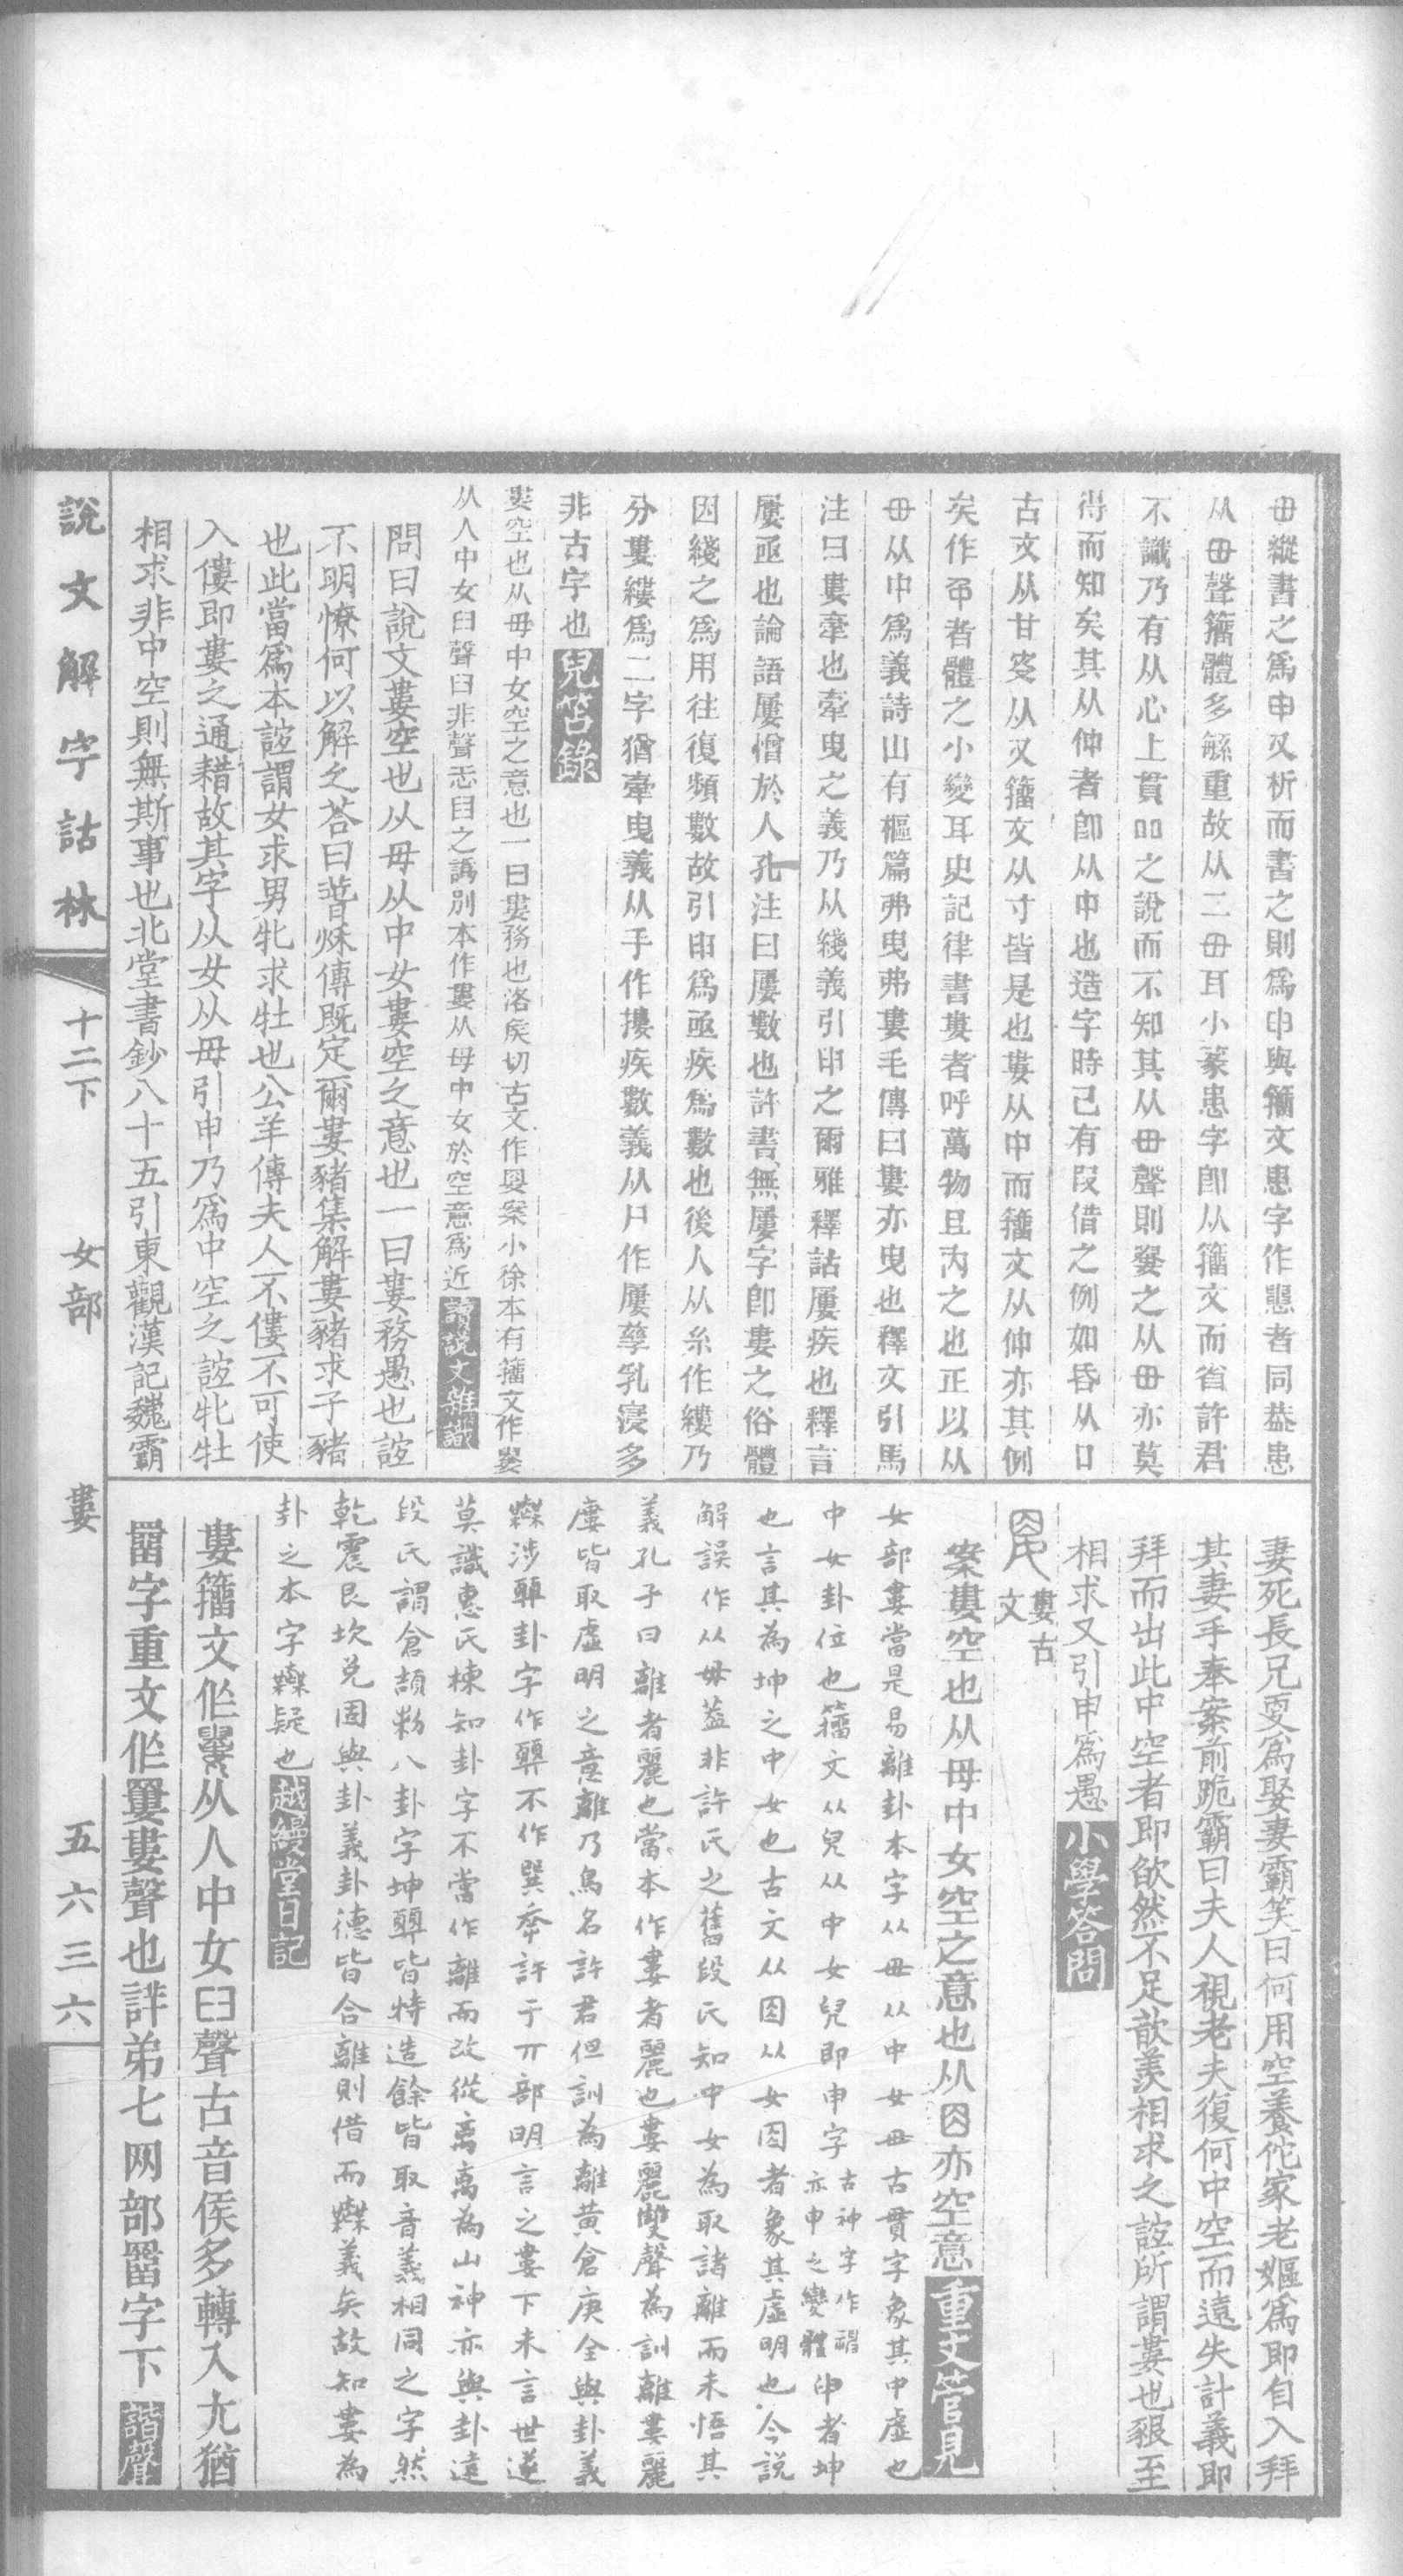 毌縱書之爲申又析而書之則爲申與籒文患字作悬者同葢患
从毌聲籒體多緐重故从二毌耳小篆患字卽从籒文而省許君
不識乃有从心上貫吅之說而不知其从毌聲則婁之从毌亦莫
得而知矣其从仲者卽从中也造字時已有叚借之例如昏从口
古文从甘㕛从又籒文从寸皆是也婁从中而籒文从仲亦其例
矣作者體之小變耳史記律書婁者呼萬物且內之也正以从
毌从中爲義詩山有樞篇弗曳弗婁毛傳曰婁亦曳也釋文引馬
注曰婁牽也牽曳之義乃从綫義引申之爾雅釋詁屢疾也釋言
屢亟也論語屢憎於人孔注曰屢數也許書無屢字卽婁之俗體
因綫之爲用往復頻數故引申爲亟疾爲數也後人从糸作縷乃
分婁縷爲二字猶牽曳義从手作摟疾數義从尸作屢孳乳寖多
非古字也兒笘錄
婁空也从毋中女空之意也一曰婁務也洛矦切古文作案小徐本有籒文作
从人中女臼聲臼非聲恐目之譌別本作婁从母中女於空意爲近讀說文雜識
問曰說文婁空也从毋从中女婁空之意也一曰婁務愚也誼
不明憭何以解之荅曰昔秌傳既定爾婁豬集解婁豬求子豬
也此當爲本誼謂女求男牝求牡也公羊傳夫人不僂不可使
入僂即婁之通藉故其字从女从毋引申乃爲中空之誼牝牡
相求非中空則無斯事也北堂書鈔八十五引東觀漢記魏霸
妻死長兄更爲娶妻霸笑曰何用空養佗家老嫗爲即自入拜
其妻手奉案前跪霸曰夫人視老夫復何中空而遠失計義即
拜而出此中空者即欿然不足歆羨相求之誼所謂婁也豤至
相求又引申爲愚小學答問
婁古文
案婁空也从毋中女空之意也从囧亦空意重文管見
女部婁當是易離卦本字从毋从中女毌古貫字象其中虛也
中女卦位也籒文从兒从中女兒即申字古神字作䄠亦申之變體申者坤
也言其為坤之中女也古文从囧从女囧者象其虛明也今說
解誤作从毋葢非許氏之舊段氏知中女為取諸離而未悟其
義孔子曰離者麗也當本作婁者麗也婁麗雙聲為訓離婁麗
廔皆取虛明之意離乃鳥名許君但訓為離黃倉庚全與卦義
無涉顨卦字作顨不作巽桼許于丌部明言之婁下未言世遂
莫識惠氏棟知卦字不當作離而改從离离為山神亦與卦遠
段氏謂倉頡勑八卦字坤顨皆特造餘皆取音義相同之字然
乾震艮坎兌固與卦義卦德皆合離則借而無義矣故知婁為
卦之本字無疑也越縵堂日記
婁籒文作从人中女臼聲古音侯多轉入尤猶
罶字重文作䍣婁聲也詳弟七网部罶字下諧聲
說文解字詁林
十二下
女部
婁
五六三六